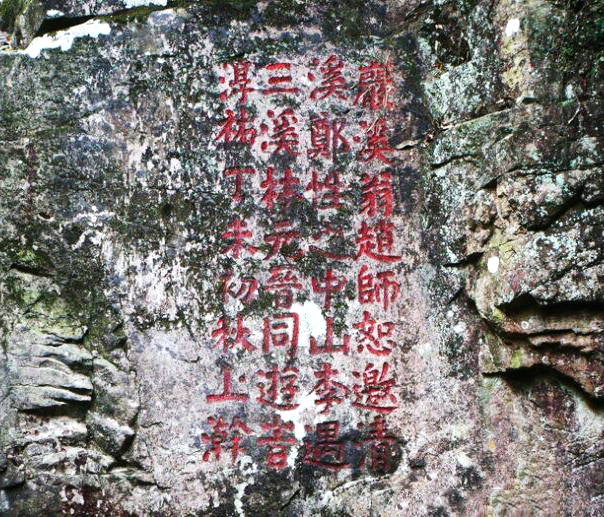 嚴溪翁趙師恕邀清
溪鄭性之中山李遇
三溪林元晉同遊旹
淳祐丁未初秋上澣